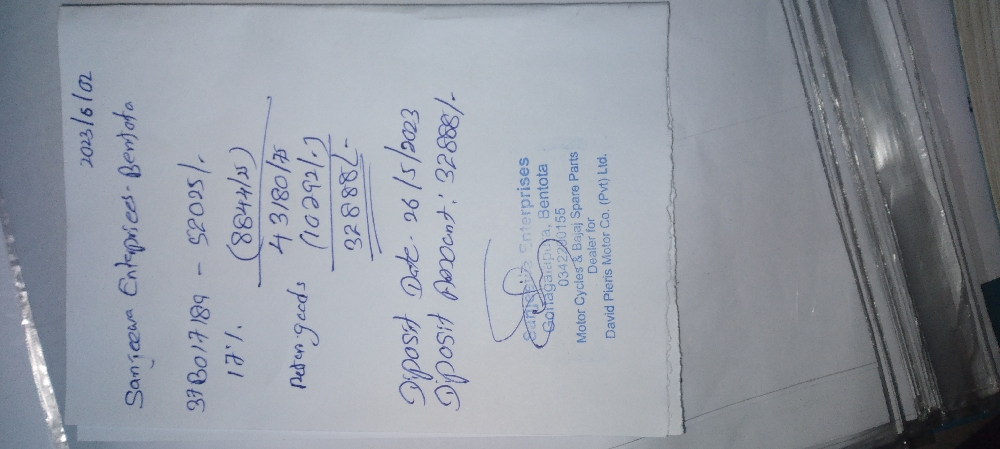 2023/6/02
Sanjeewa Enterprisees - Bentota
37B017189 - 52025/-
17% (8844/25)
43180/75
Return goods (10292/-)
32888/-
Diposit Date - 26/5/2023
Diposit Amount: 32888/-
Enterprises
Bentota
Motor Cycles & Bajaj Spare Parts
Dealer for
David Pieris Motor Co. (Pvt) Ltd.